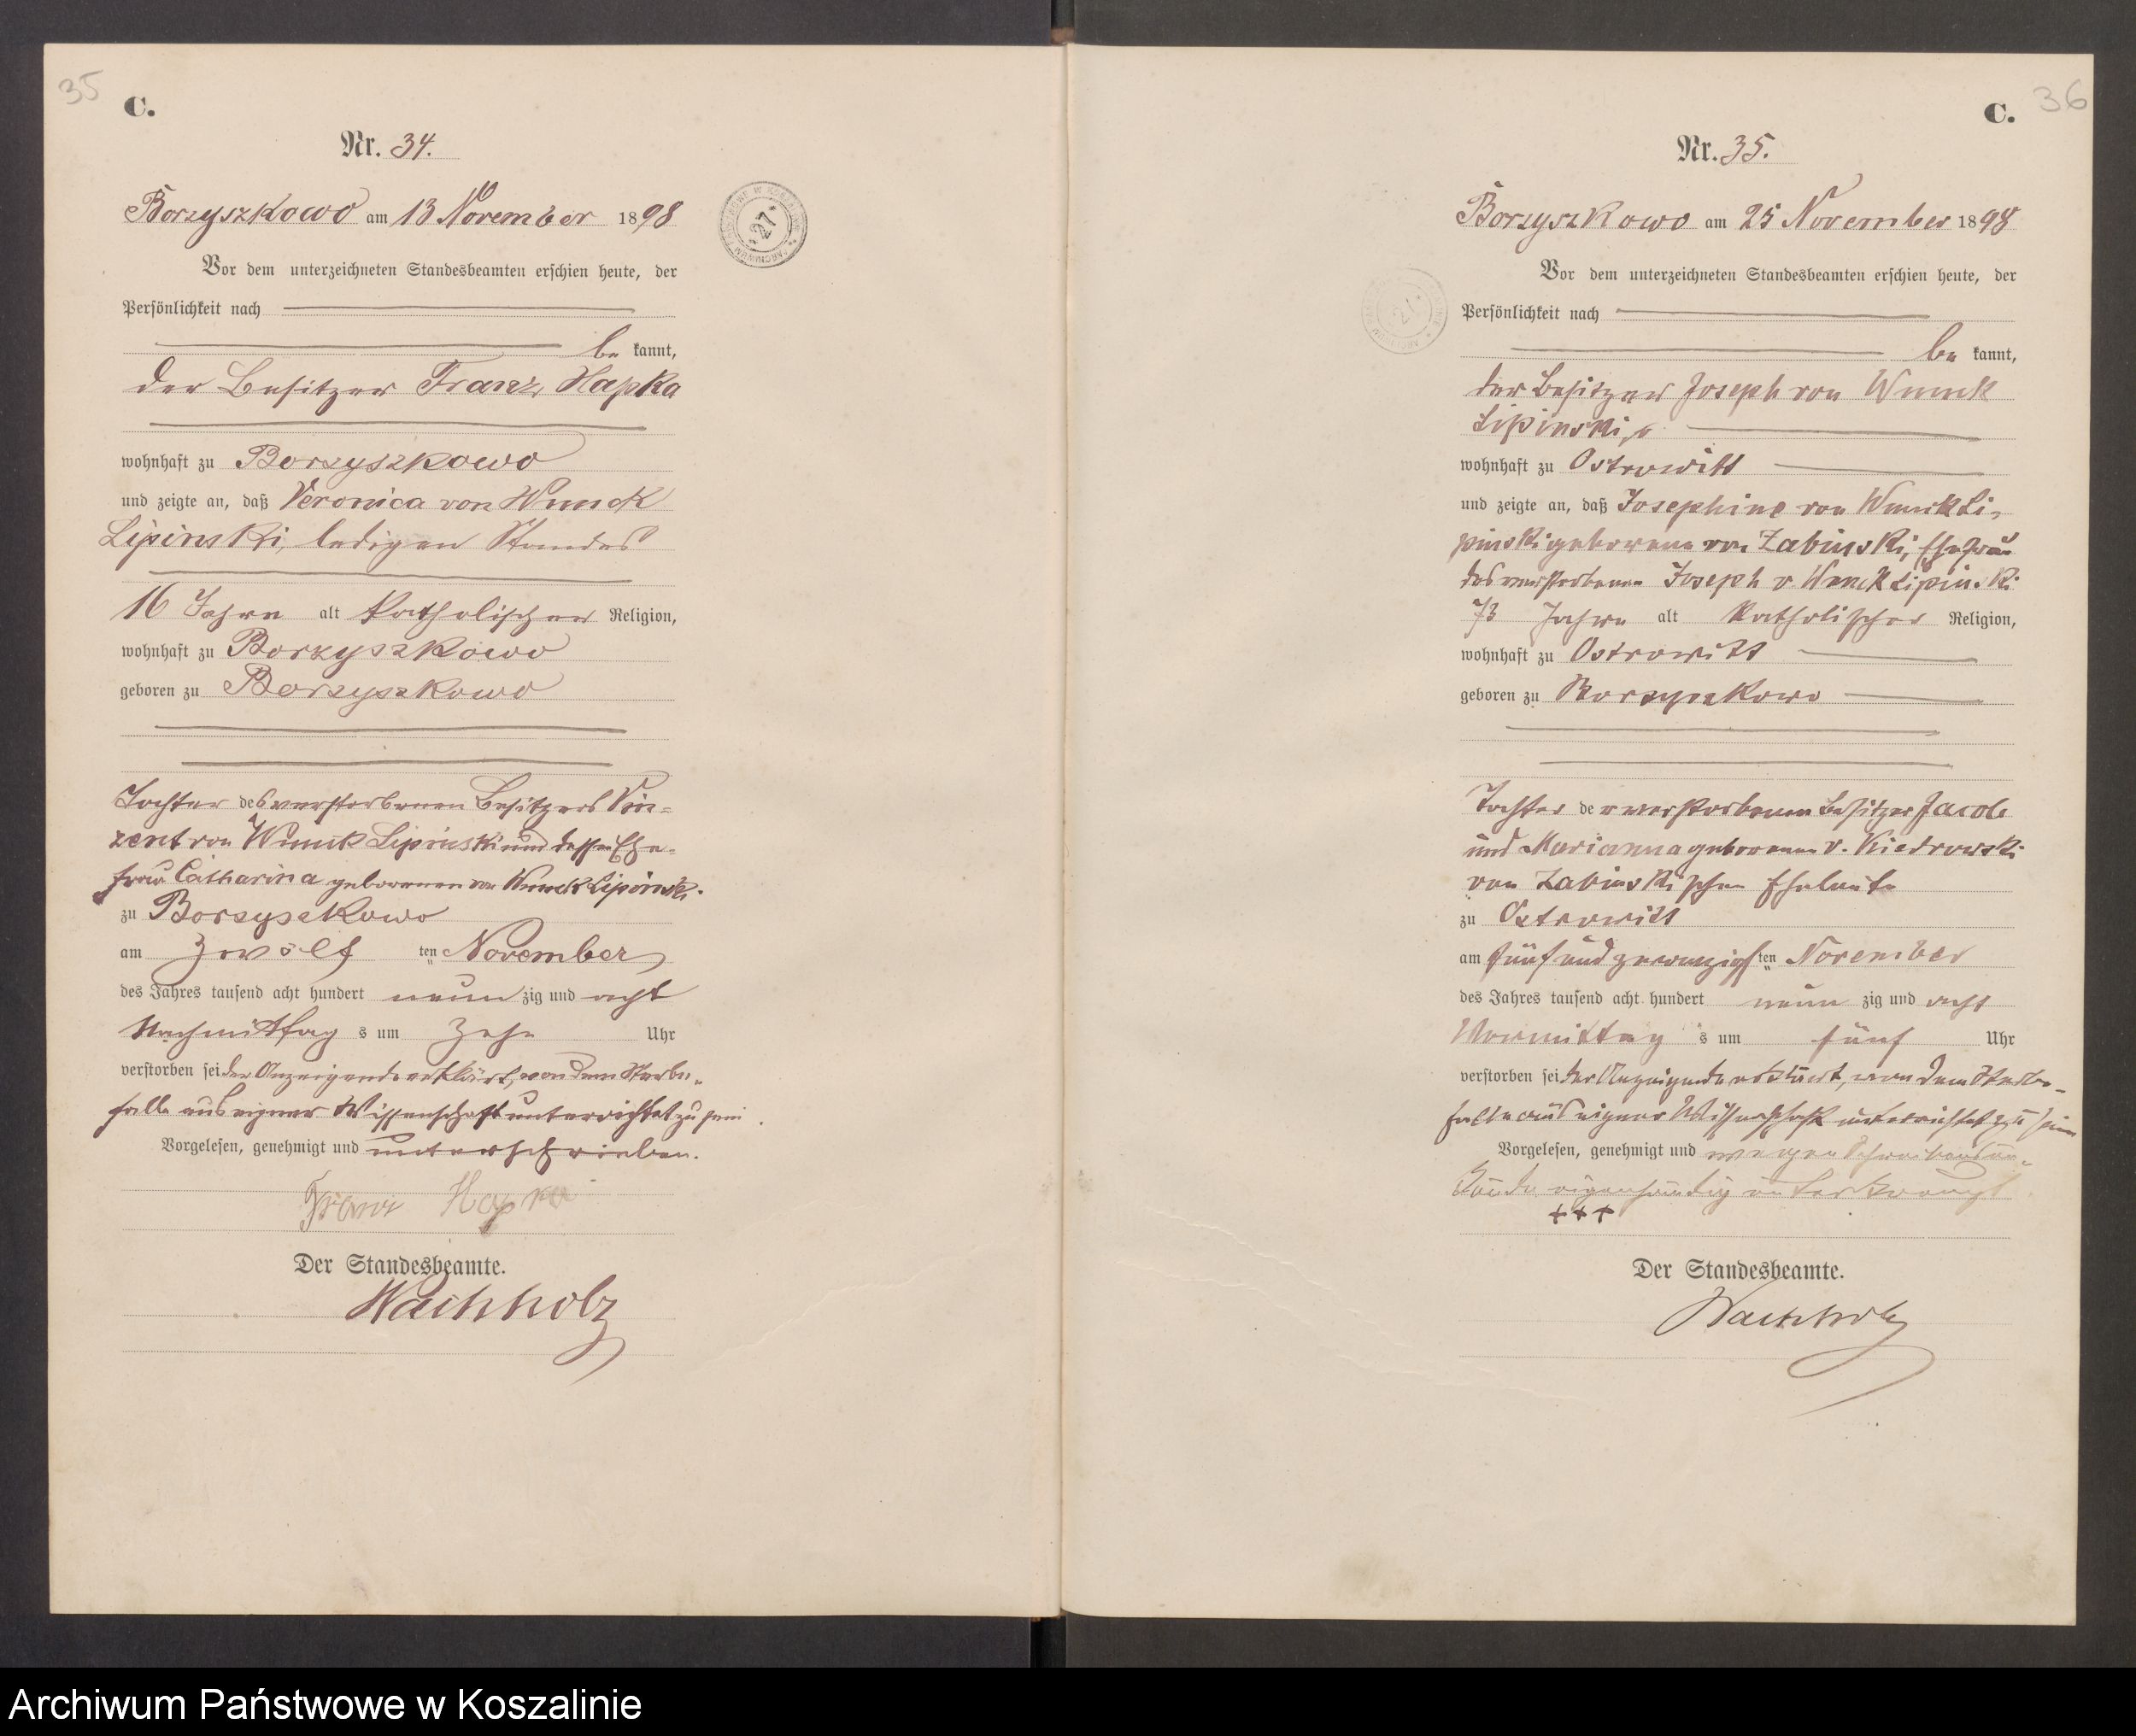 35
C.
Nr. 34.
Borzyszkowo am 13 November 1898
Vor dem unterzeichneten Standesbeamten erschien heute, der
Persönlichkeit nach
be kannt,
der Besitzer Franz Hapka
wohnhaft zu Borzyszkowo
und zeigte an, daß Veronica von Wunck
Lipinski, ledigen Standes
16 Jahre alt katholischer Religion,
wohnhaft zu Borzyszkowo
geboren zu Borzyszkowo
Tochter des verstorbenen Besitzers Vin=
zent von Wunck Lipinski und dessen Ehe=
frau Catharina geborenen von Wunck Lipinski.
zu Borzyszkowo
am Zwölf ten November
des Jahres tausend acht hundert neun zig und acht
Nachmittag s um Zehn Uhr
verstorben sei der Anzeigende erklärt, von dem Sterbe=
falle aus eigner Wissenschaft unterrichtet zu sein.
Vorgelesen, genehmigt und unterschrieben.
Franz Hapka
Der Standesbeamte.
Wachholz
ARCHIWUM PAŃSTWOWE W KOSZALINIE
27
36
C.
Nr. 35.
Borzyszkowo am 25 November 1898
Vor dem unterzeichneten Standesbeamten erschien heute, der
Persönlichkeit nach
be kannt,
der Besitzer Joseph von Wunck
Lipinski,
wohnhaft zu Ostrowitt
und zeigte an, daß Josephine von Wunck Li=
pinski geborene von Zabinski, Ehefrau
des verstorbenen Joseph v. Wunck Lipinski
73 Jahre alt katholischer Religion,
wohnhaft zu Ostrowitt
geboren zu Borzyszkowo
Tochter der verstorbenen Besitzer Jacob
und Marianna geborenen v. Kiedrowski
von Zabinskischen Eheleute
zu Ostrowitt
am fünfundzwanzigsten November
des Jahres tausend acht hundert neun zig und acht
Vormittag s um fünf Uhr
verstorben sei der Anzeigende erklärt, von dem Sterbe=
falle aus eigner Wissenschaft unterrichtet zu sein
Vorgelesen, genehmigt und wegen Schreibensun=
kunde eigenhändig unterkreuzt
+++
Der Standesbeamte.
Wachholz
Archiwum Państwowe w Koszalinie